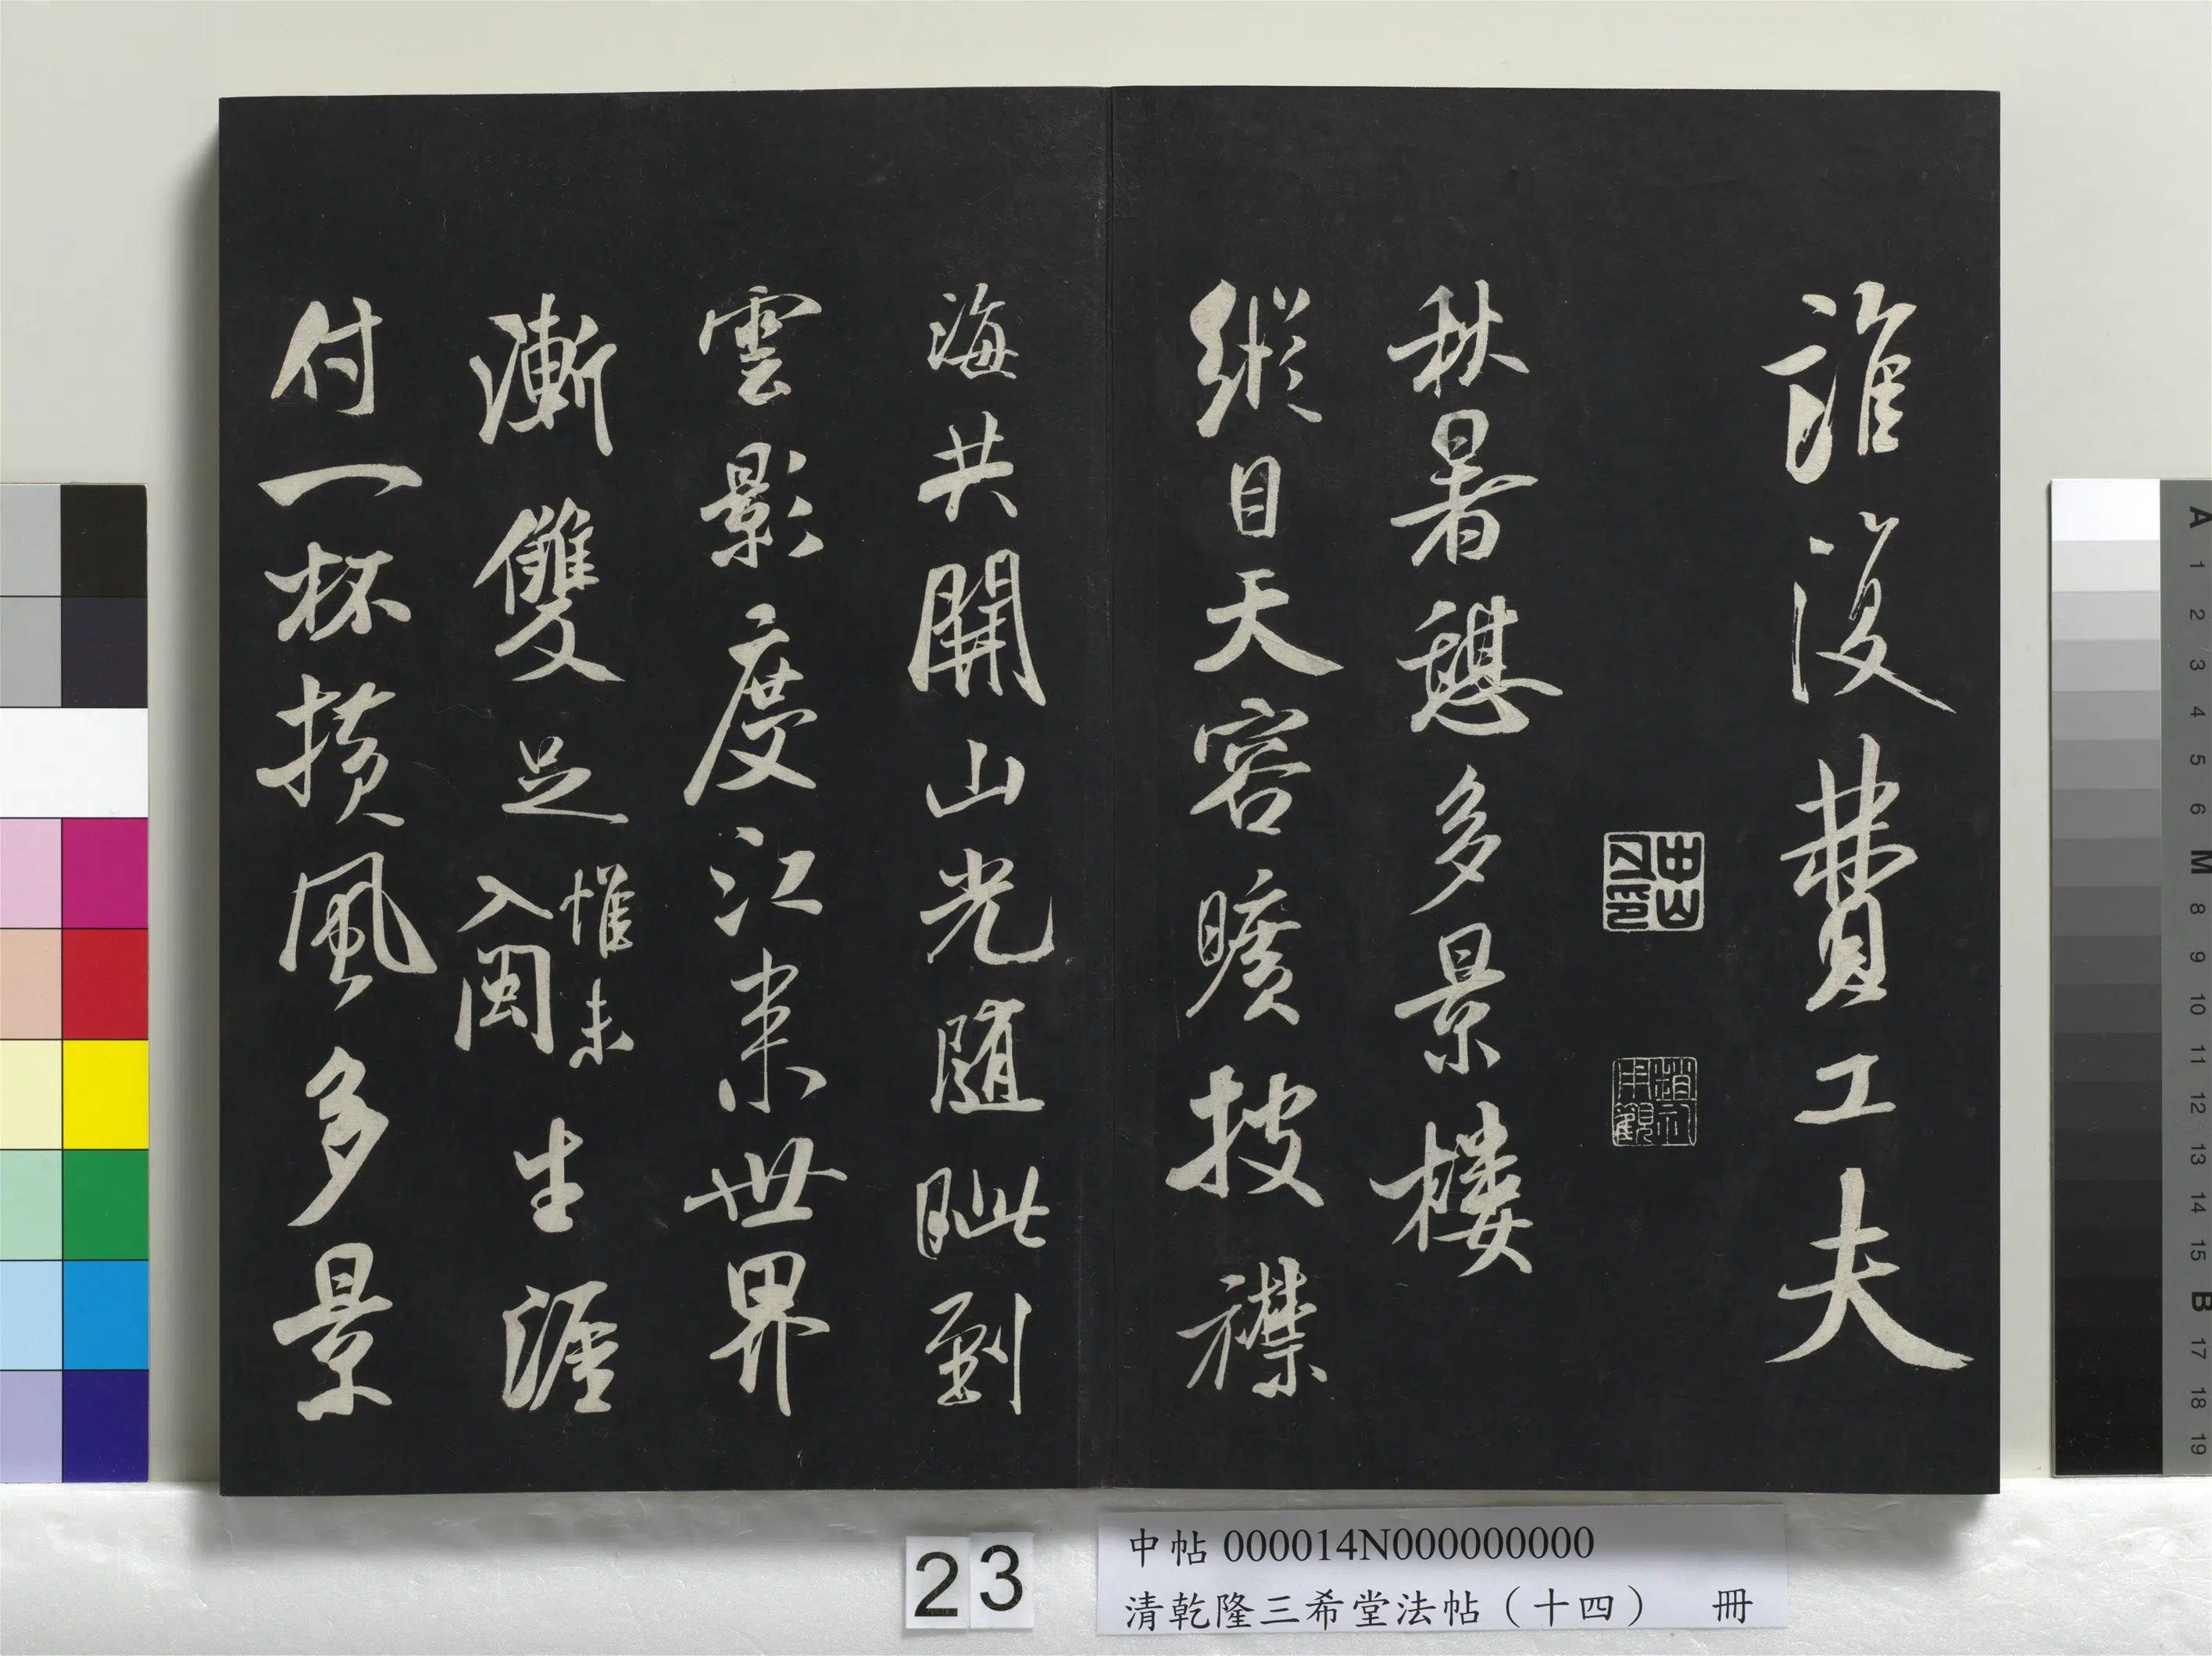 誰復費工夫
秋暑憩多景樓
縱目天容曠披襟
海共開山光隨眦到
雲影度江来世界
漸雙足惟未入閩生涯
付一杯横風多景
中山人印
趙
觀
23
中帖 000014N000000000
清乾隆三希堂法帖（十四） 冊
A 1 2 3 4 5 6 M 8 9 10 11 12 13 14 15 B 17 18 19